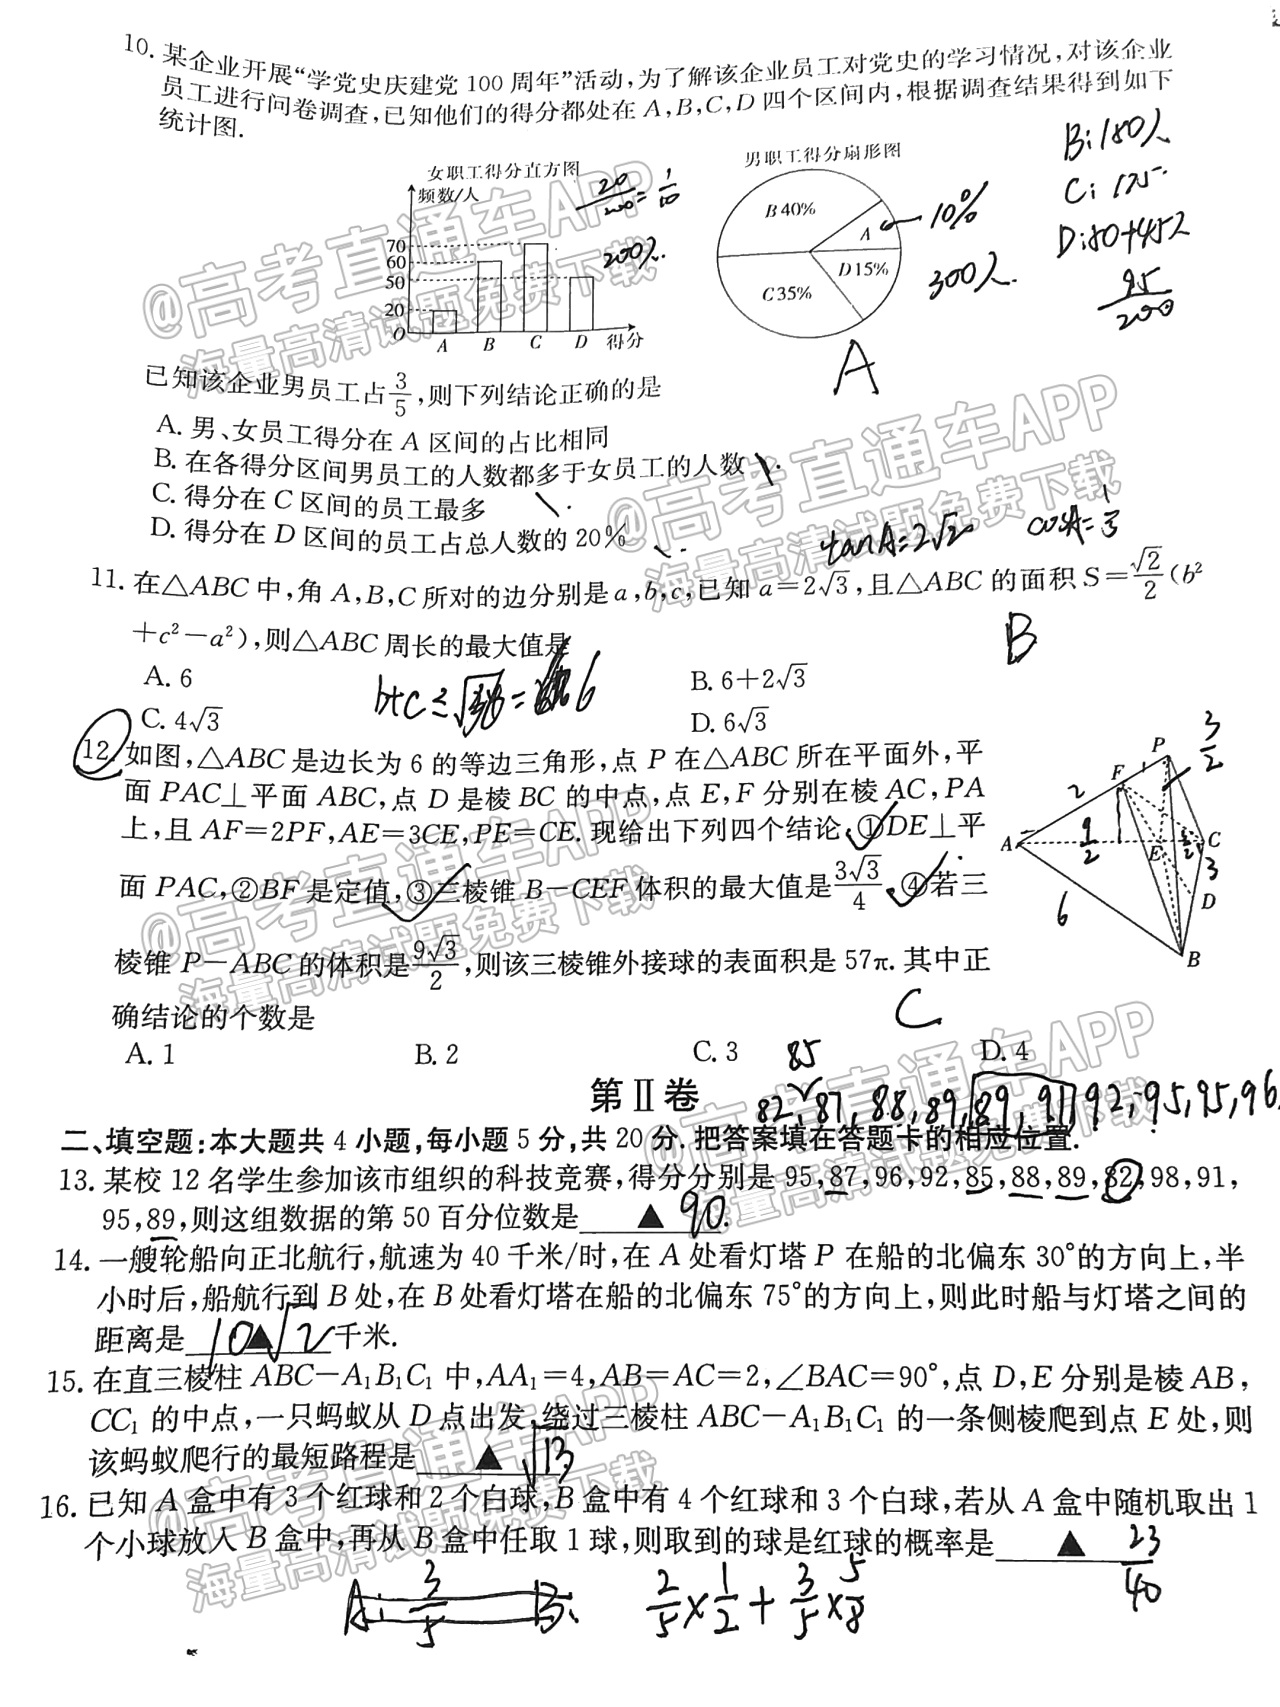 10. 某企业开展“学党史庆建党 100 周年”活动,为了解该企业员工对党史的学习情况,对该企业
员工进行问卷调查,已知他们的得分都处在 A,B,C,D 四个区间内,根据调查结果得到如下
统计图.
女职工得分直方图
频数/人
70
60
50
20
O
A B C D 得分
20/200=1/10
200人.
男职工得分扇形图
B 40%
A
D 15%
C 35%
10%
300人.
B:180人
C:175.
D:50+45人
95/200
A
已知该企业男员工占3/5,则下列结论正确的是
A. 男、女员工得分在 A 区间的占比相同
B. 在各得分区间男员工的人数都多于女员工的人数
C. 得分在 C 区间的员工最多
D. 得分在 D 区间的员工占总人数的 20%
tanA=2√2
cosA=1/3
11. 在△ABC 中,角 A,B,C 所对的边分别是 a,b,c,已知 a=2√3,且△ABC 的面积 S=√2/2(b²
+c²-a²),则△ABC 周长的最大值是
B
A. 6
B. 6+2√3
C. 4√3
D. 6√3
b+c≤
6
12. 如图,△ABC 是边长为 6 的等边三角形,点 P 在△ABC 所在平面外,平
面 PAC⊥平面 ABC,点 D 是棱 BC 的中点,点 E,F 分别在棱 AC,PA
上,且 AF=2PF,AE=3CE,PE=CE. 现给出下列四个结论:①DE⊥平
面 PAC,②BF 是定值,③三棱锥 B-CEF 体积的最大值是3√3/4,④若三
棱锥 P-ABC 的体积是9√3/2,则该三棱锥外接球的表面积是 57π. 其中正
确结论的个数是
C
P
F
A
E
C
D
B
3/2
2
9/2
3
6
A. 1
B. 2
C. 3
D. 4
85
第Ⅱ卷
82 87,88,89,89,91,92,95,95,96
二、填空题:本大题共 4 小题,每小题 5 分,共 20 分. 把答案填在答题卡的相应位置.
13. 某校 12 名学生参加该市组织的科技竞赛,得分分别是 95,87,96,92,85,88,89,82,98,91,
95,89,则这组数据的第 50 百分位数是 ▲ 90.
14. 一艘轮船向正北航行,航速为 40 千米/时,在 A 处看灯塔 P 在船的北偏东 30°的方向上,半
小时后,船航行到 B 处,在 B 处看灯塔在船的北偏东 75°的方向上,则此时船与灯塔之间的
距离是 10▲√2 千米.
15. 在直三棱柱 ABC-A₁B₁C₁ 中,AA₁=4,AB=AC=2,∠BAC=90°,点 D,E 分别是棱 AB,
CC₁ 的中点,一只蚂蚁从 D 点出发,绕过三棱柱 ABC-A₁B₁C₁ 的一条侧棱爬到点 E 处,则
该蚂蚁爬行的最短路程是 ▲ √13.
16. 已知 A 盒中有 3 个红球和 2 个白球,B 盒中有 4 个红球和 3 个白球,若从 A 盒中随机取出 1
个小球放入 B 盒中,再从 B 盒中任取 1 球,则取到的球是红球的概率是 ▲ 23/40
A: 3/5 B:
2/5×1/2+3/5×5/8
@高考直通车APP
海量高清试题免费下载
@高考直通车APP
海量高清试题免费下载
@高考直通车APP
海量高清试题免费下载
@高考直通车APP
海量高清试题免费下载
@高考直通车APP
海量高清试题免费下载